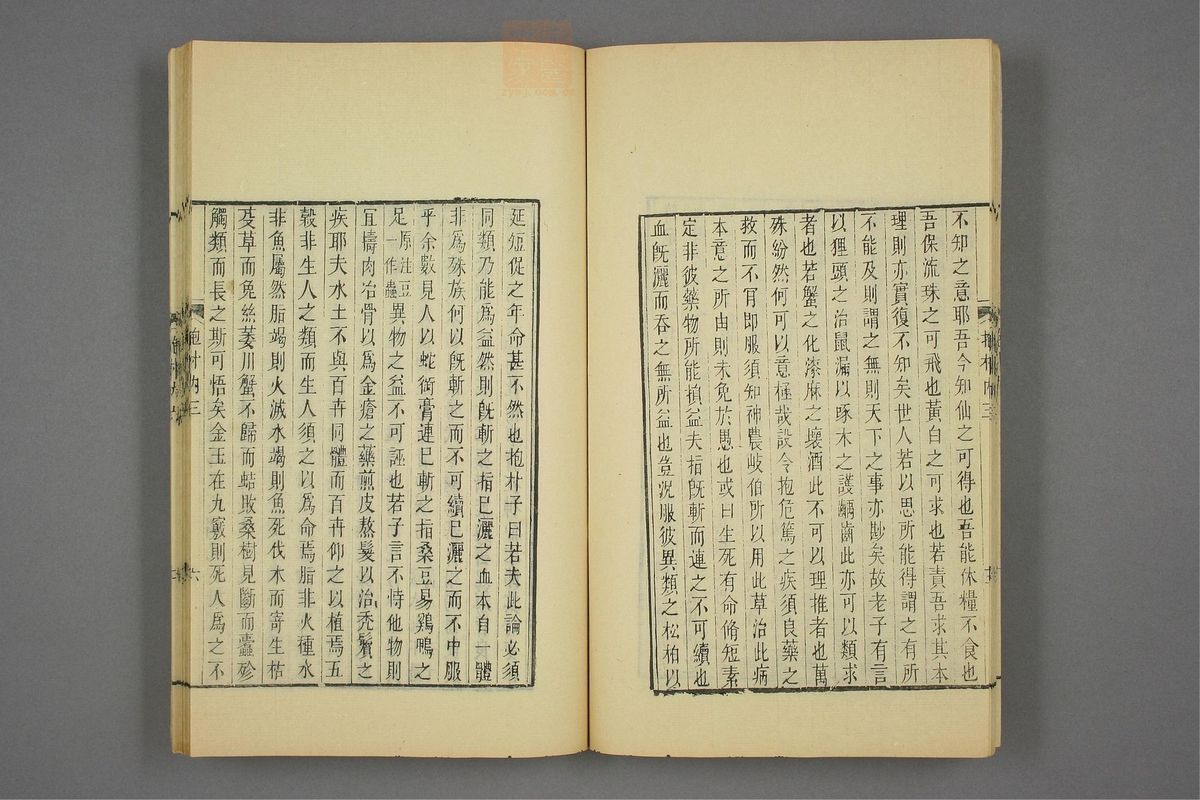 不知之意耶吾今知仙之可得也吾能休糧不食也
吾保流珠之可飛也黃白之可求也若責吾求其本
理則亦實復不知矣世人若以思所能得謂之有所
不能及則謂之無則天下之事亦尠矣故老子有言
以狸頭之治鼠漏以啄木之護齲齒此亦可以類求
者也若蟹之化漆麻之壞酒此不可以理推者也萬
殊紛然何可以意極哉設令抱危篤之疾須良藥之
救而不肎即服須知神農岐伯所以用此草治此病
本意之所由則未免於愚也或曰生死有命脩短素
定非彼藥物所能損益夫指旣斬而連之不可續也
血旣灑而吞之無所益也豈況服彼異類之松柏以
延短促之年命甚不然也抱朴子曰若夫此論必須
同類乃能爲益然則旣斬之指已灑之血本自一體
非爲殊族何以旣斬之而不可續已灑之而不中服
乎余數見人以蛇銜膏連已斬之指桑豆易鷄鴨之
足原注豆一作蟲異物之益不可誣也若子言不恃他物則
宜擣肉冶骨以爲金瘡之藥煎皮熬髮以治禿鬢之
疾耶夫水土不與百卉同體而百卉仰之以植焉五
穀非生人之類而生人須之以爲命焉脂非火種水
非魚屬然脂竭則火滅水竭則魚死伐木而寄生枯
芟草而兔絲萎川蟹不歸而蛣敗桑樹見斷而蠹殄
觸類而長之斯可悟矣金玉在九竅則死人爲之不
抱朴內三
六